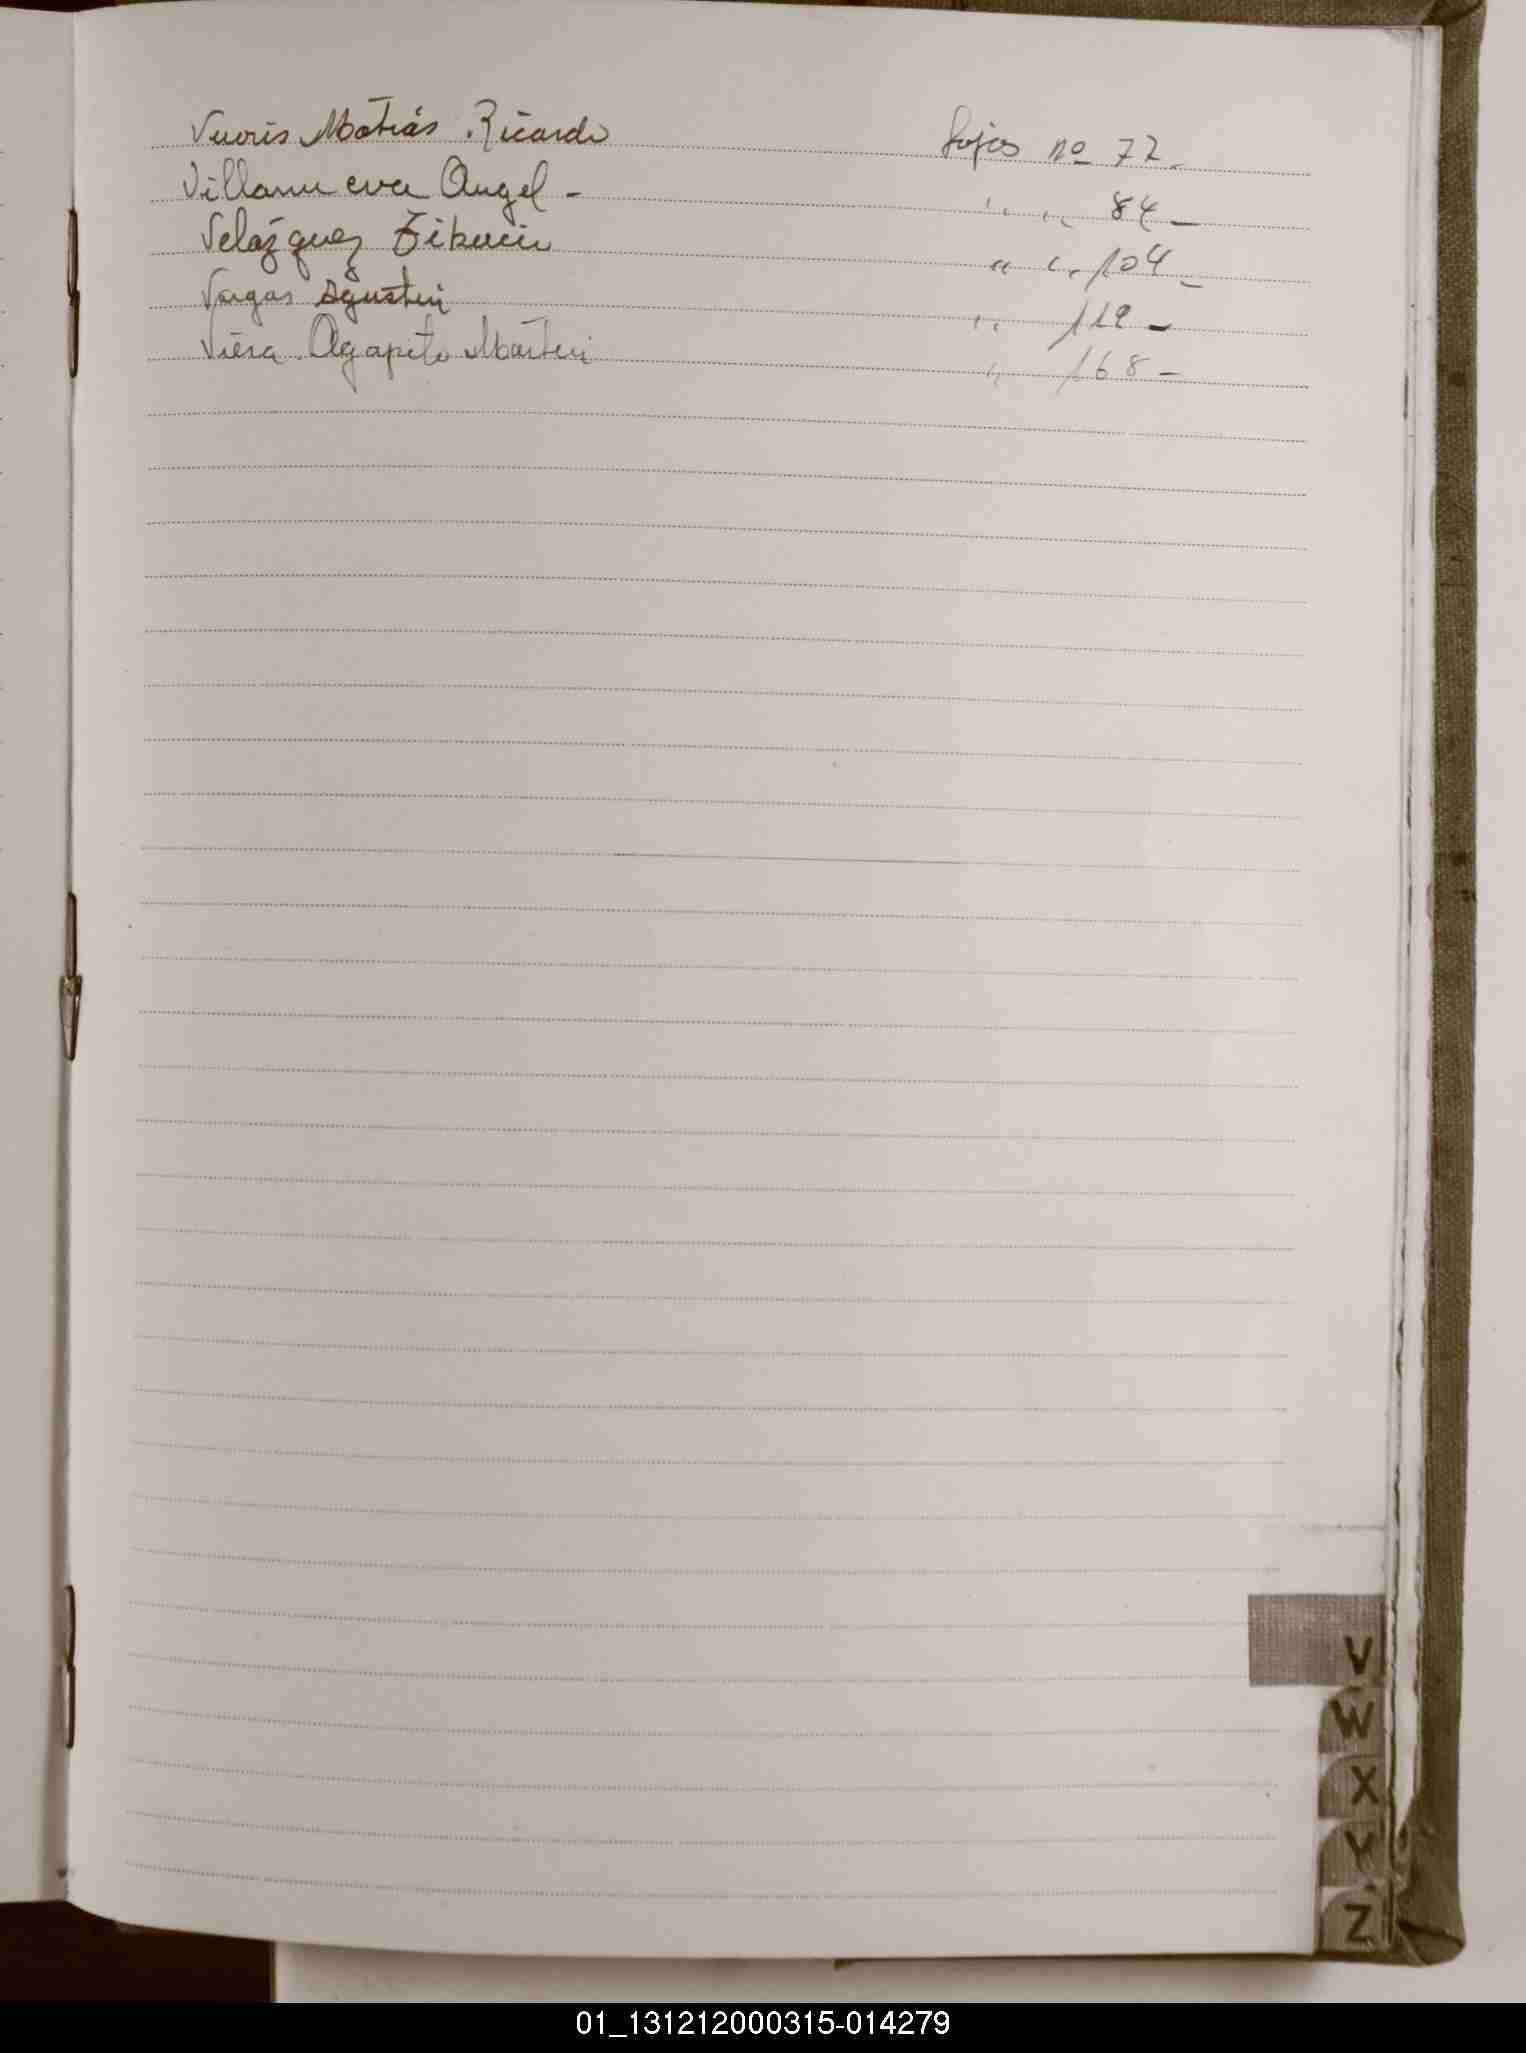 Matiás Ricardo fojas nº 77.
Villanueva Angel - " " 84 -
Velázquez " " 104 -
Vargas Agustin " 112 -
Viera Agapito Martin " 168 -
V
W
X
Y
Z
01_131212000315-014279